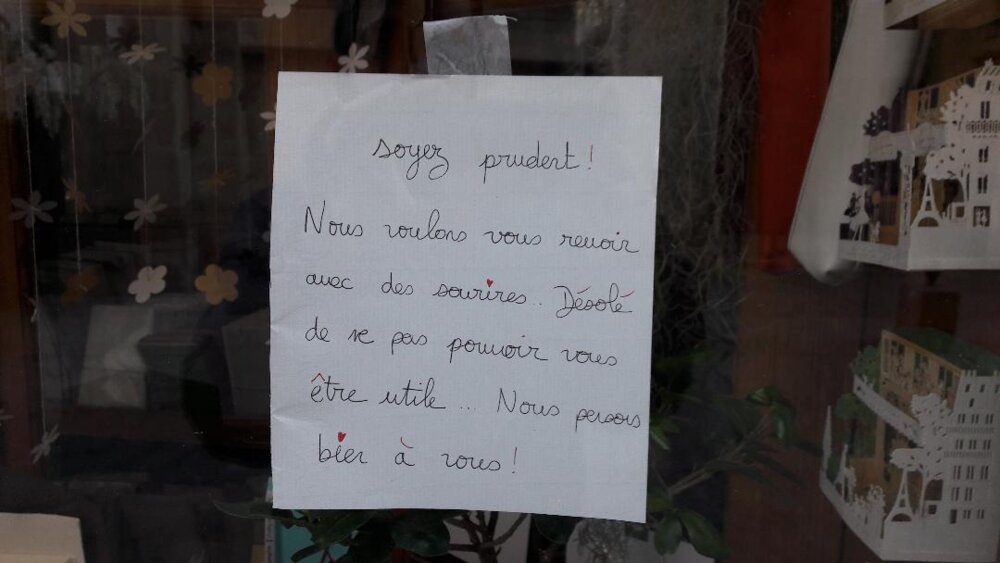 soyez prudent !
Nous voulons vous revoir
avec des sourires.. Désolé
de ne pas pouvoir vous
être utile ... Nous pensons
bien à vous !